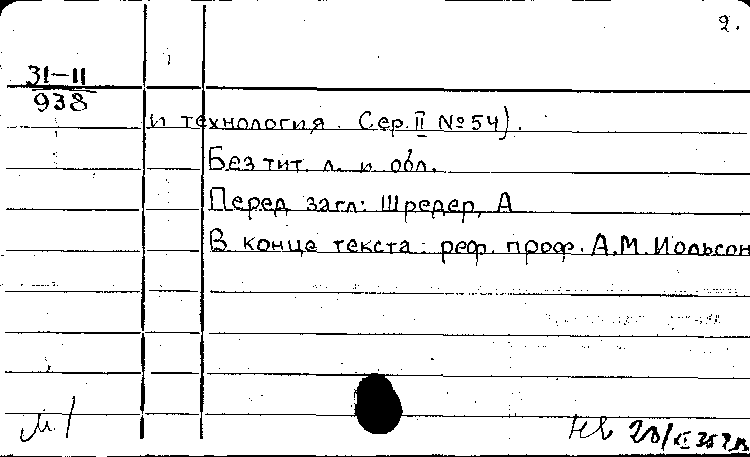 2.
31-11
938
и технология. Сер. II № 54).
Без тит. л. и обл.
Перед загл: Шредер, А
В конце текста: реф. проф. А.М. Иольсон